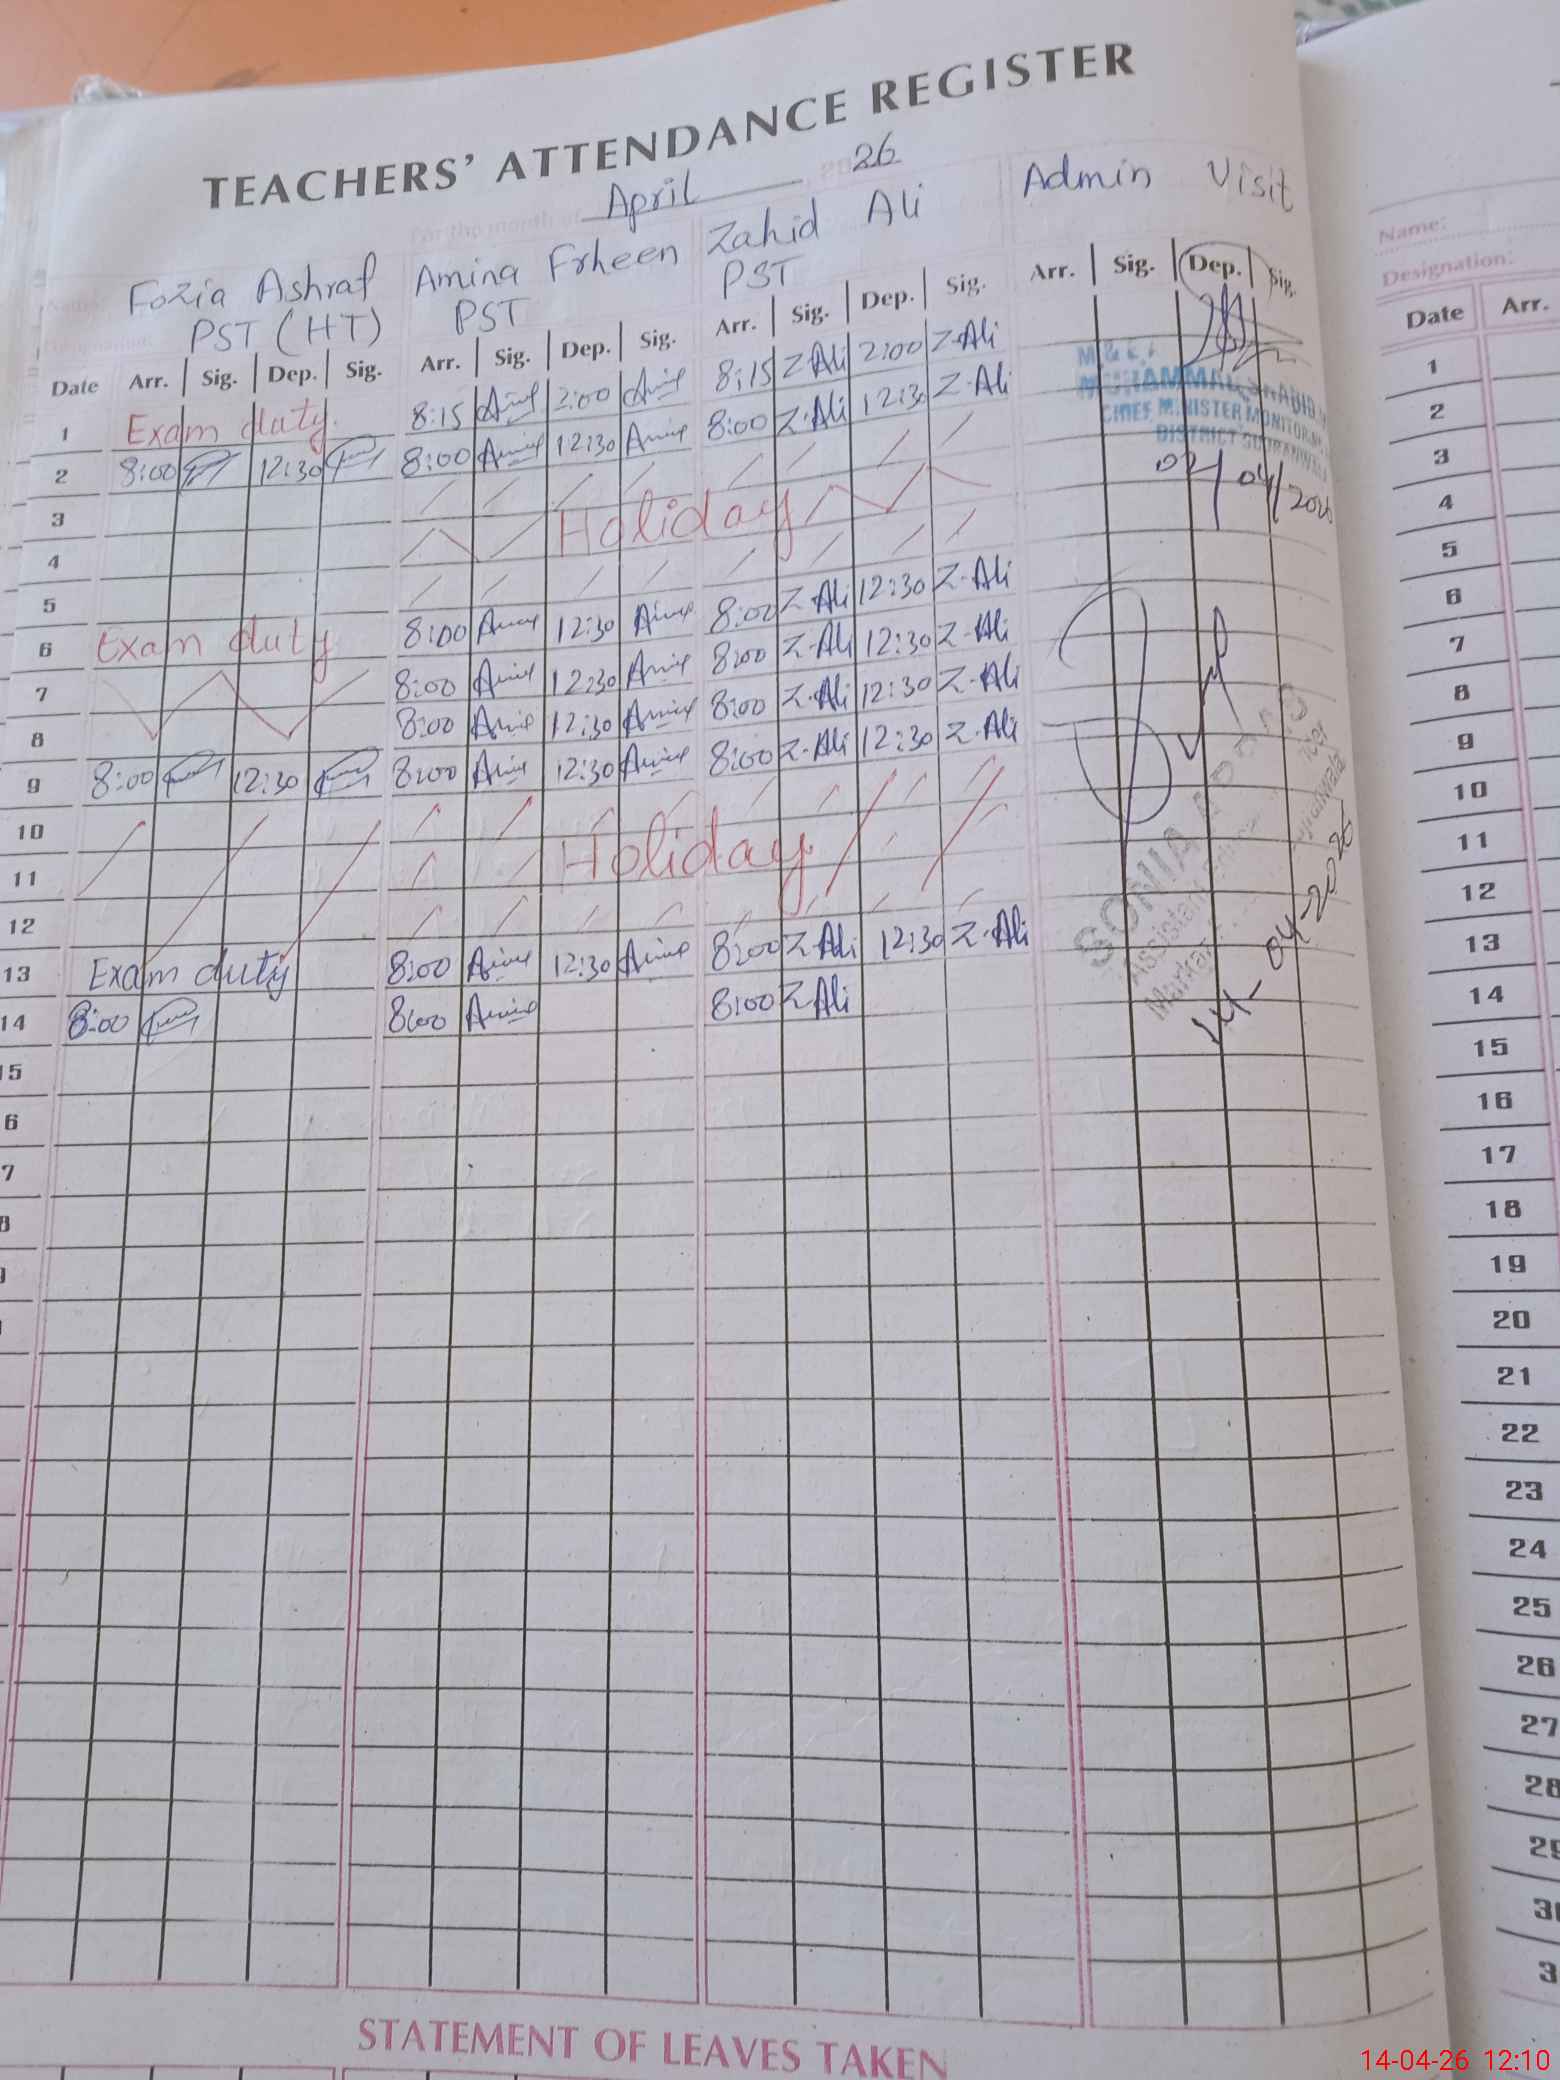 TEACHERS' ATTENDANCE REGISTER
For the month of April 2026
Fozia Ashraf Amina Frheen Zahid Ali Admin Visit
PST (HT) PST PST
Date Arr. Sig. Dep. Sig. Arr. Sig. Dep. Sig. Arr. Sig. Dep. Sig. Arr. Sig. Dep. Sig.
1 Exam duty. 8:15 2:00 8:15 Z-Ali 2:00 Z-Ali
2 8:00 12:30 8:00 12:30 8:00 Z-Ali 12:30 Z-Ali
3
4 Holiday
5
6 Exam duty 8:00 12:30 8:00 Z-Ali 12:30 Z-Ali
7 8:00 12:30 8:00 Z-Ali 12:30 Z-Ali
8 8:00 12:30 8:00 Z-Ali 12:30 Z-Ali
9 8:00 12:30 8:00 12:30 8:00 Z-Ali 12:30 Z-Ali
10
11 Holiday
12
13 Exam duty 8:00 12:30 8:00 Z-Ali 12:30 Z-Ali
14 8:00 8:00 8:00 Z-Ali
15
6
7
8
CHIEF MINISTER MONITORING
DISTRICT
04/2026
SONIA
Assistant
Markaz
14-04-2026
STATEMENT OF LEAVES TAKEN
Name:
Designation:
Date Arr.
1
2
3
4
5
6
7
8
9
10
11
12
13
14
15
16
17
18
19
20
21
22
23
24
25
26
27
28
14-04-26 12:10